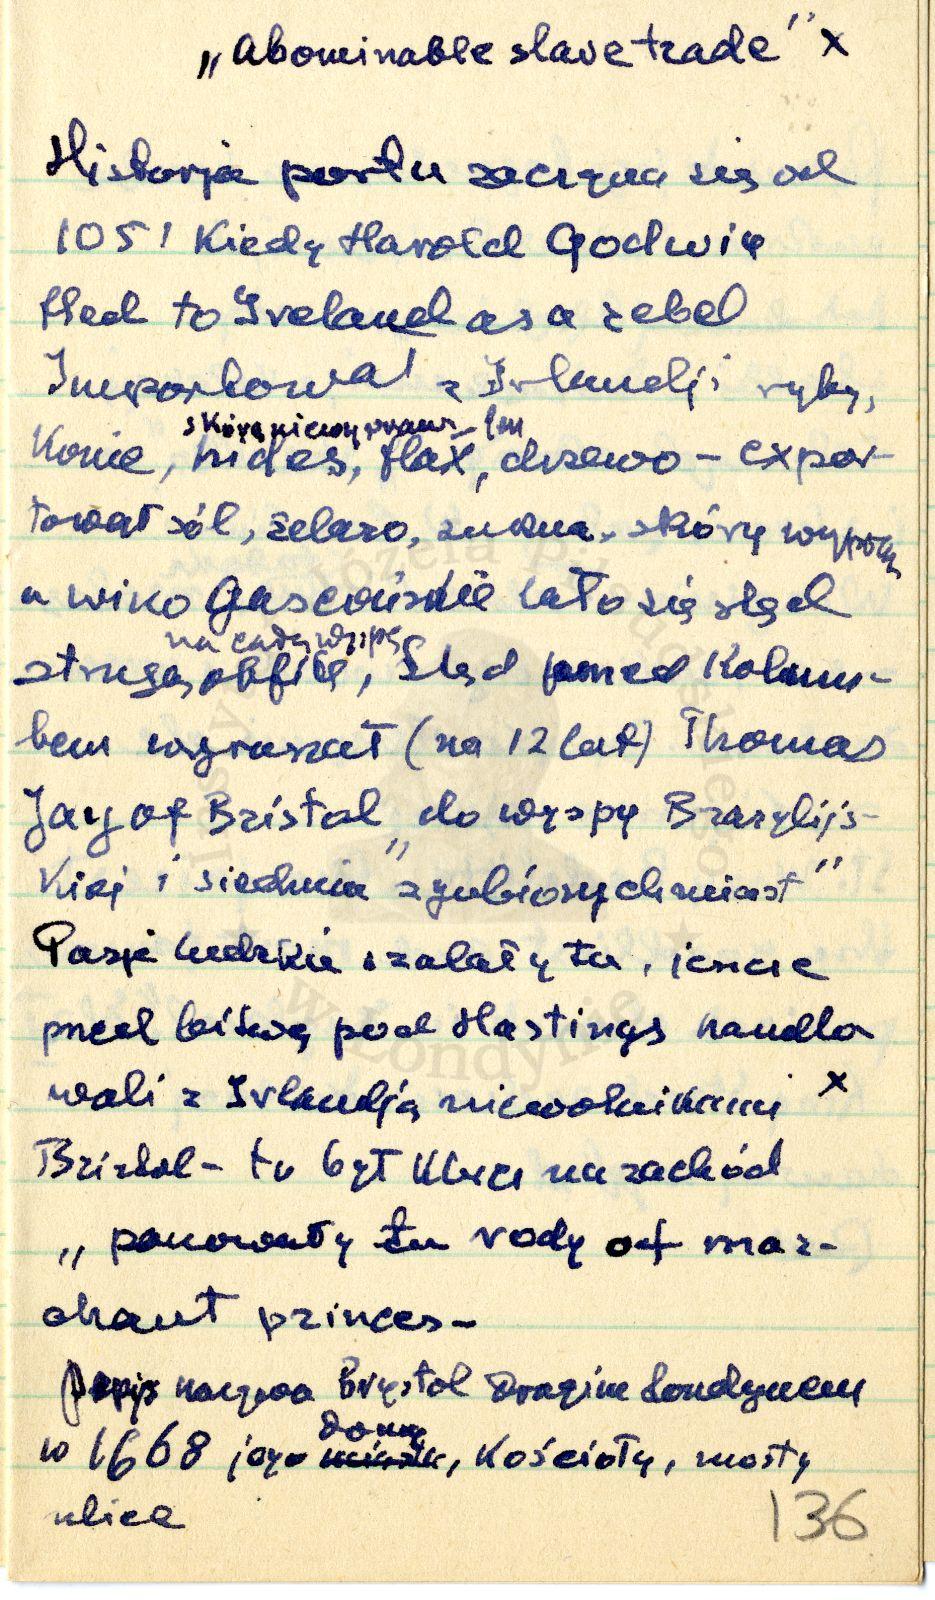 „Abominable slave trade" x
Historja portu zaczyna się od
1051 Kiedy Harold Godwin
fled to Ireland as a rebel
Importował z Irlandji ryby,
skóry niewypraw- len
Konie, hides, flax, drzewo – expor-
tował sól, żelazo, sukna, skóry
a wino Gascońskie lało się stąd
na całą wyspę
strugą obfitą, Stąd przed Kolum-
bem wyruszał (na 12 lat) Thomas
Jay of Bristol „do wyspy Brazylijs-
Kiej i siedmiu zgubionych miast"
Pasje ludzkie szalały tu, jeszcze
przed bitwą pod Hastings handlo
wali z Irlandją niewolnikami x
Bristol – to był Klucz na zachód
„panowały tu rody of mar-
chant princes –
Pepys nazywa Brystol Drugim Londynem
domy
w 1668 jego miasto, Kościoły, mosty
ulice
136
Józefa Piłsudskiego
w Londynie